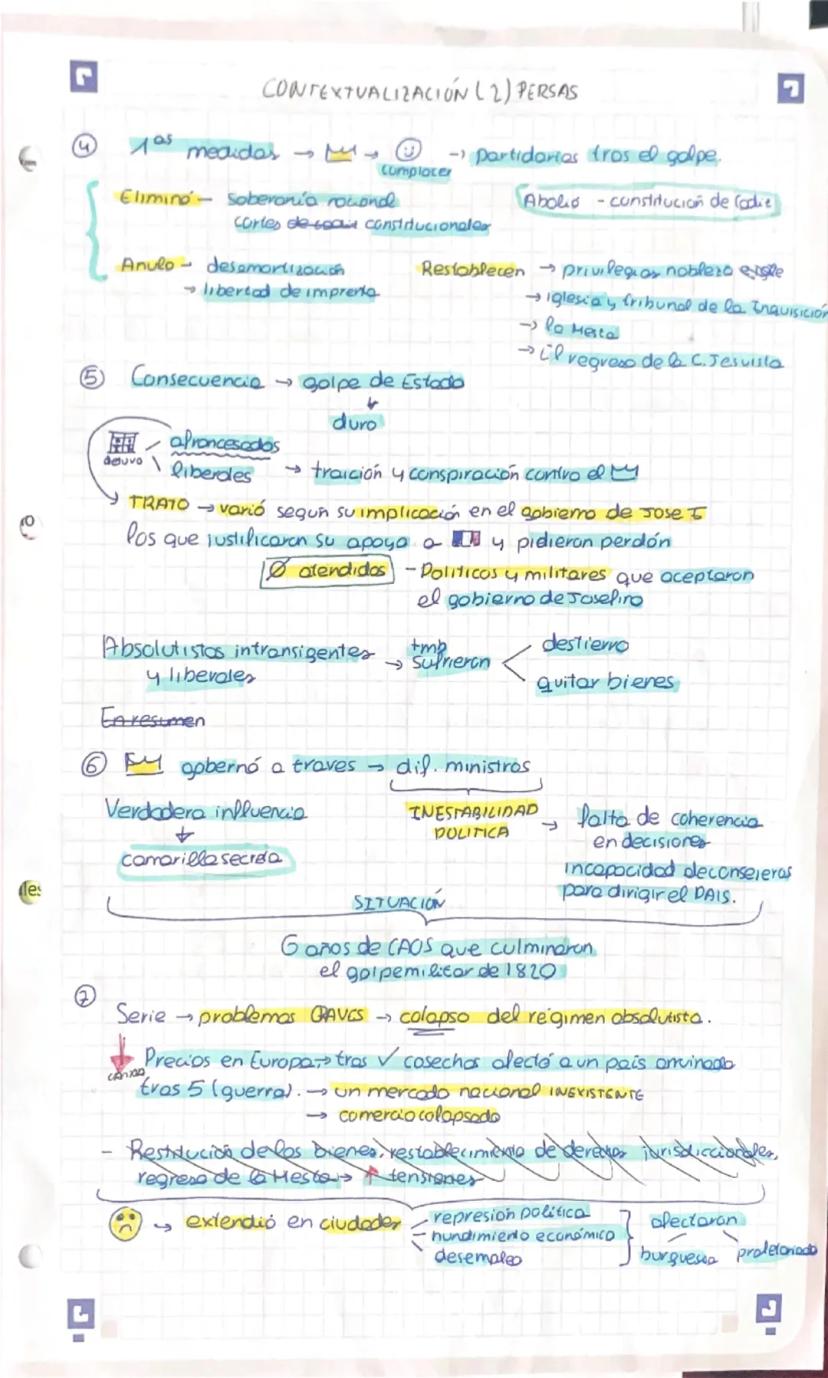 CONTEXTUALIZACIÓN (2) PERSAS
④ 1as medidas → → complacer → partidarias tras el golpe.
Eliminó - soberanía nacional
cortes de cadiz constitucionales
Abolió - constitución de Cadiz
Anulo - desamortización
→ libertad de imprenta
Restablecen → privilegios nobleza
→ iglesia y tribunal de la Inquisición
→ la Mesta
→ El regreso de la C. Jesuista
⑤ Consecuencia → golpe de Estado
duro
detuvo
afrancesados
liberales → traición y conspiración contra el
TRATO → varió según su implicación en el gobierno de Jose I
los que justificaron su apoyo a y pidieron perdón
Ø atendidos - Políticos y militares que aceptaron
el gobierno de Josefino
Absolutistas intransigentes
y liberales → tmb sufrieron
destierro
quitar bienes
En resumen
⑥ gobernó a traves → dif. ministros
Verdadera influencia
camarilla secreta
INESTABILIDAD
POLITICA → falta de coherencia
en decisiones
incapacidad de consejeros
para dirigir el PAIS.
SITUACIÓN
6 años de CAOS que culminaron
el golpe militar de 1820
⑦
Serie → problemas GRAVES → colapso del régimen absolutista.
Precios en Europa → tras ✓ cosechas afectó a un país arruinado
caida
tras 5 (guerra). → un mercado nacional INEXISTENTE
→ comercio colapsado
- Restitución de los bienes, restablecimiento de derechos jurisdiccionales,
regreso de la Mesta → ↑ tensiones
→ extendió en ciudades
represión política
hundimiento económico
desempleo
afectaron
burguesia
proletariado
les